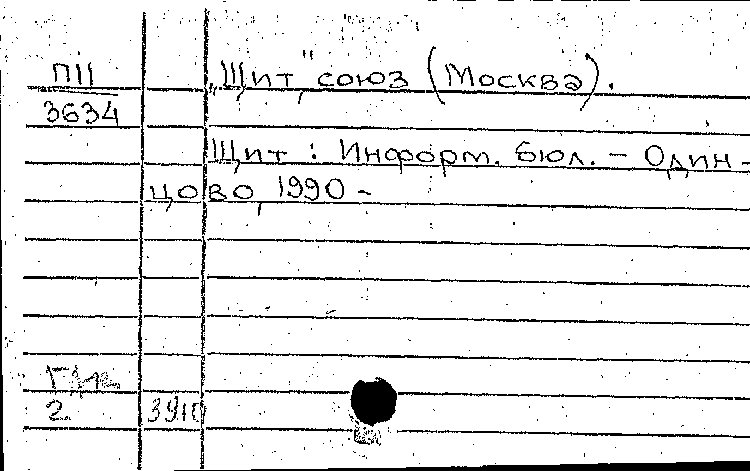 П11 „Щит", союз (Москва).
3634
Щит : Информ. бюл. – Один-
цово, 1990 –
2 3910